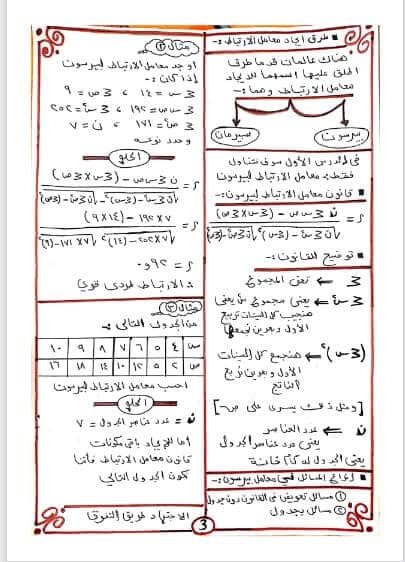 ■ طرق ايجاد معامل الارتباط :-
هناك عالمان قدما طرق
اطلق عليها اسمهما لايجاد
معامل الارتباط وهما :-
بيرسون
سبيرمان
فى الدرس الأول سوف نتناول
فقط معامل الارتباط لبيرسون
■ قانون معامل الارتباط لبيرسون :-
ر = ن ∑س ص - (∑س × ∑ص)
√ن ∑س² - (∑س)² √ن ∑ص² - (∑ص)²
■ توضيح القانون :-
∑ ← تعنى المجموع
∑س² ← يعنى مجموع س² يعنى
هنجيب كل السينات تربيع
الأول وبعدين نجمعها
(∑س)² ← هنجمع كل السينات
الأول وبعدين نربع
الناتج
[ومثل ذلك يسرى على ص]
ن ← عدد العناصر
يعنى عدد عناصر الجدول
يعنى الجدول له كام خانة
■ أنواع المسائل فى معامل بيرسون :-
① مسائل تعويض فى القانون دون جدول
② مسائل بجدول
مثال ②
اوجد معامل الارتباط لبيرسون
إذا كان :-
∑س = ١٤ ، ∑ص = ٩
∑س ص = ١٩٢ ، ∑س² = ٢٠٢
∑ص² = ١٧١ ، ن = ٧
وحدد نوعه
الحلو
ر = ن ∑س ص - (∑س × ∑ص)
√ن ∑س² - (∑س)² √ن ∑ص² - (∑ص)²
ر = ٧ × ١٩٢ - (١٤ × ٩)
√٧ × ٢٠٢ - (١٤)² √٧ × ١٧١ - (٩)²
ر = ٩٢و٠
∴ الارتباط طردى قوي
مثال ③
من الجدول التالى :-
س ٤ ٥ ٦ ٧ ٨ ٩ ١٠
ص ٢ ٥ ١٢ ١٠ ١٤ ١٨ ١٦
احسب معامل الارتباط لبيرسون
الحلو
ن = عدد عناصر الجدول = ٧
أما لإيجاد باقى مكونات
قانون معامل الارتباط فأننا
نكون الجدول التالى
الاجتهاد طريق التفوق
3